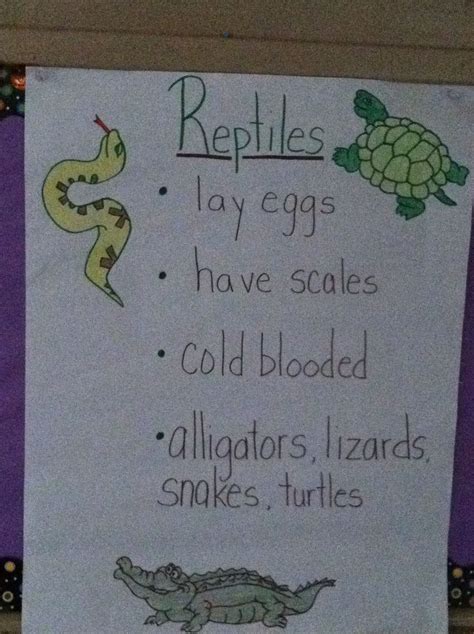 Reptiles
• lay eggs
• have scales
• cold blooded
• alligators, lizards,
snakes, turtles